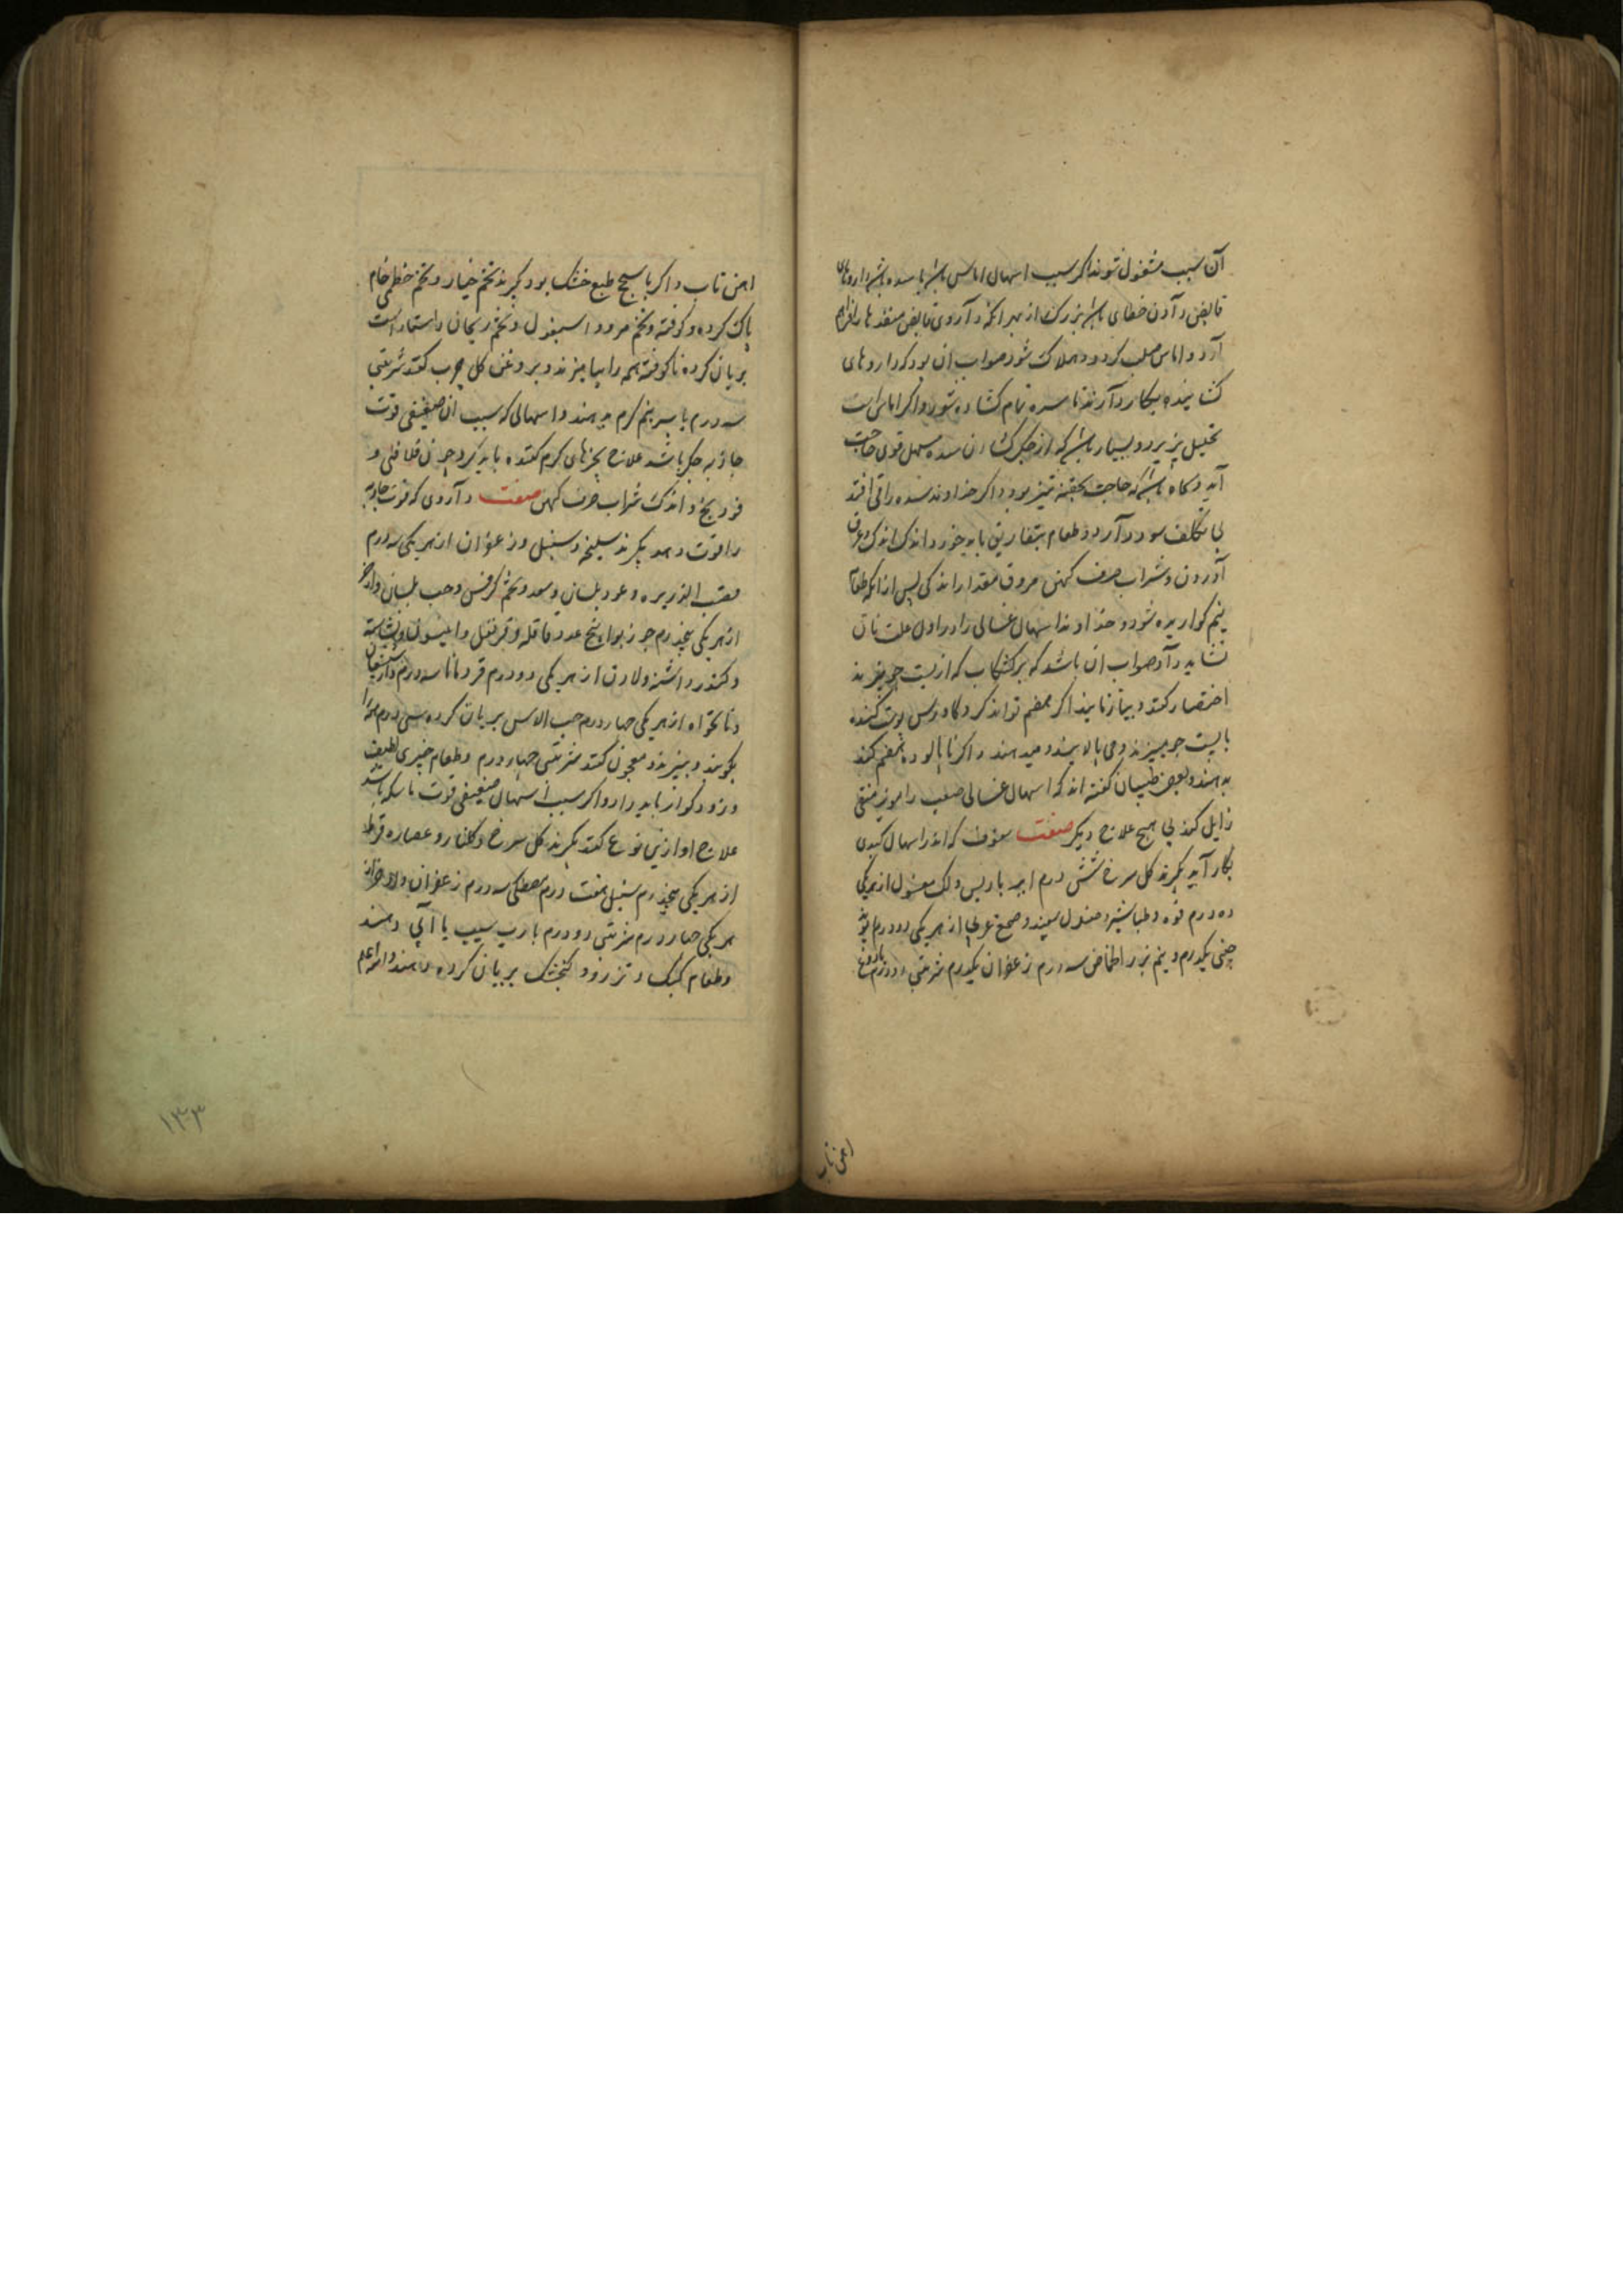 آن سبب مشغول شوند اکر سبب اسهال اماس باشد یا سده باشد داروهای
قابض دادن خطای باشد بزرک از بهر انکه داروی قابض منفذها را فراهم
آرد و اماس صلب کردد و هلاک شود صواب ان بود که داروهای
کشاینده بکار دارند تا سده تمام کشاده شود و اکر اماس است
تحلیل پذیرد و بسیار باشد که از جکر کشادن سده مسهل قوی حاجت
آید و کاه باشد که حاجت بحقنه تیز بود و اکر خداوند سده را قی افتد
بی تکلف سود دارد و طعام بتفاریق باید خورد اندک اندک و عرق
آوردن و شراب صرف کهن مروق مقدار اندکی پس از انکه طعام
نیم کواریده شود و خداوند اسهال غسالی را در اول علت نان
نشاید داد صواب آن باشد که بر کشکاب که از پست جو پزند
اختصار کنند و نیاز نایند اکر هضم تواند کرد کاورس پوست کنده
با پست جو میپزند و می پالایند و میدهند و اکر نا پالوده هضم کند
بدهند و بعضی طبیبان کفته اند که اسهال غسالی صعب را مویز منقی
زایل کند بی هیچ علاج دیکر صفت سفوف که اندر اسهال کبدی
بکار آید بکیرند کل سرخ شش درم امبر باریس و لک مغسول از هر یکی
ده درم فوه و طباشیر و صندل سپید و صمغ عربی از هر یکی دو درم ریوند
چینی یکدرم و نیم بزر الحماض سه درم زعفران یکدرم شربتی دو درم با دوغ
اهن تاب
اهن تاب و اکر با سحج طبع خشک بود بکیرند تخم خیار و تخم خطمی خام
پاک کرده و کوفته و تخم مرو و اسبغول و تخم ریحان راستاراست
بریان کرده ناکوفته همه را بیامیزند و بروغن کل چرب کنند شربتی
سه درم با سپرغم کرم میدهند و اسهالی که سبب ان ضعیفی قوت
جاذبه جکر باشد علاج بچیزهای کرم کننده باید کرد چون فلافلی و
فودنج و اندک شراب صرف کهن صفت داروی که قوت جاذبه
را قوت دهد بکیرند سلیخه و سنبل و زعفران از هر یکی سه درم
قصب الذریره و عود بلسان و سعد و تخم کرفس و حب بلسان و اذخر
از هر یکی پنجدرم جوز بوا پنج عدد قاقله و قرنفل و انیسون و نشاسته
و کندر و اشنه و لادن از هر یکی دو درم قردمانا سه درم دارشیشعان
و نانخواه از هر یکی چهار درم حب الاس بریان کرده سی درم همه را
بکوبند و ببیزند و معجون کنند شربتی چهار درم و طعام چیزی لطیف
و زود کوار باید داد و اکر سبب اسهال ضعیفی قوت ماسکه باشد
علاج او ازین نوع کنند بکیرند کل سرخ و کلنار و عصاره قرظ
از هر یکی پنجدرم سنبل هفت درم مصطکی سه درم زعفران و لادن از
هر یکی چهار درم شربتی دو درم با رب سیب یا آبی دهند
و طعام کبک و تذرو و کنجشک بریان کرده دهند و الله اعلم
۱۳۳